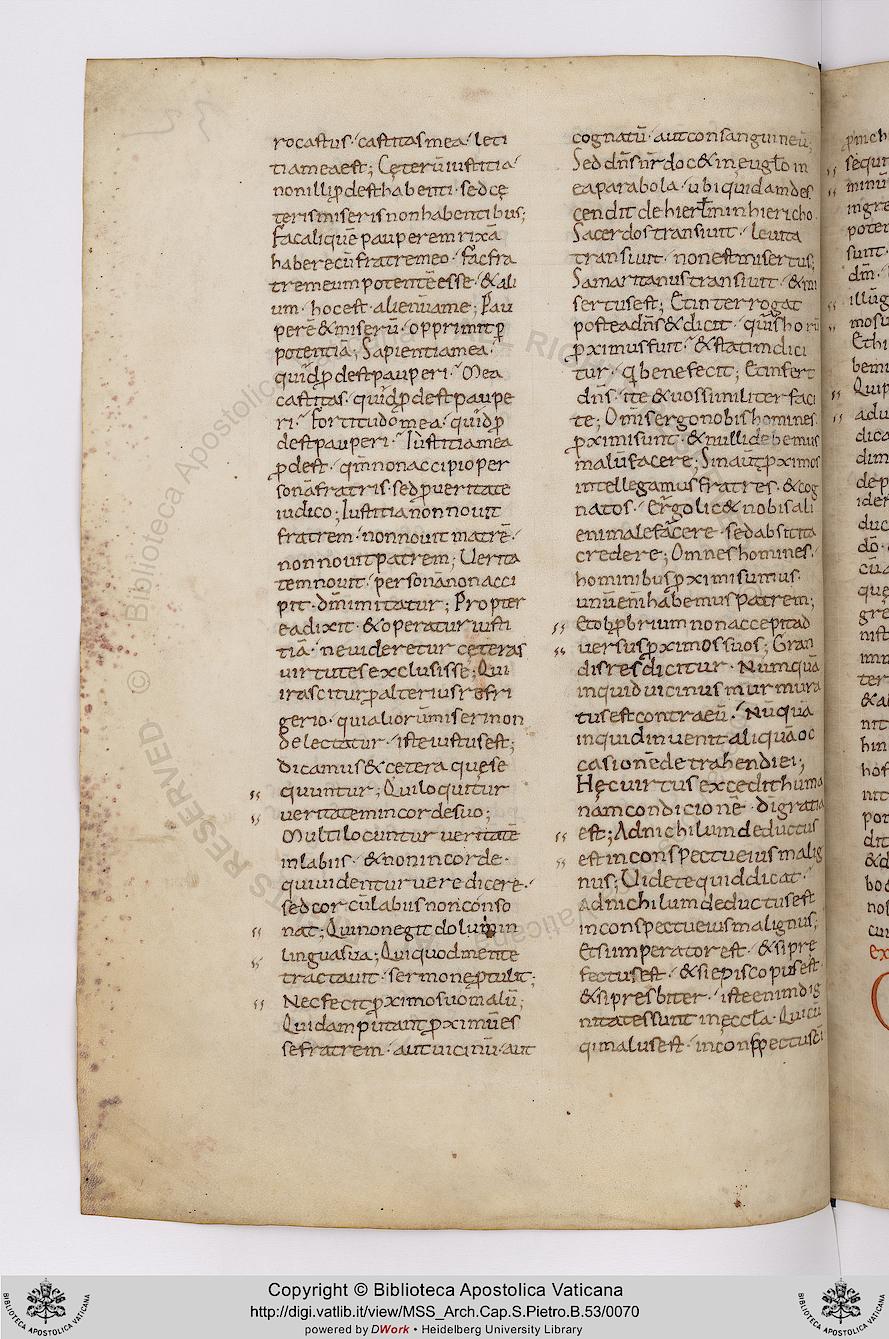 rocastus· castitas mea· leti
tia mea est; Cęterū iustitia
non illi ꝓdest habenti· sed cę
teris miseris non habentibus;
Fac aliquē pauperem rixā
habere cū fratre meo· fac fra
trem eum potentē esse· & ali
um· hoc est alienū ame; Pau
perē & miserū· opprimit ꝓ
potentiā; Sapientia mea·
quid ꝓdest pauperi· Mea
castitas· quid ꝓdest paupe
ri· Fortitudo mea· quid ꝓ
dest pauperi· Iustitia mea
ꝓdest· qm̄ non accipio per
sonā fratris· sed ꝓ veritate
iudico; Iustitia non novit
fratrem· non novit matrē·
non novit patrem; Verita
tem novit· personā non acci
pit· dm̄ imitatur; Propter
ea dixit· & operatur iusti
tiā· ne videretur ceteras
virtutes exclusisse; Qui
irascitur ꝓ alterius refri
gerio· qui aliorū miseri non
delectatur· iste iustus est;
Dicamus & cetera quę se
quuntur; Qui loquitur
veritatem in corde suo;
Multi locuntur veritatē
in labiis· & non in corde·
qui videntur vere dicere·
sed cor cū labiis non conso
nat; Qui non egit dolum in
lingua sua; Qui quod mente
tractavit· sermone ꝓtulit;
Nec fecit ꝓximo suo malū;
Quidam putant ꝓximū es
se fratrem· aut vicinū· aut
cognatū· aut consanguineū;
Sed dn̄s nr̄ docet in evglo in
ea parabola· ubi quidam des
cendit de hierl̄m in hiericho·
Sacerdos transiuit· levita
transiuit· non est misertus;
Samaritanus transiuit· & mi
sertus est; Et interrogat
postea dn̄s & dicit· quis horū
ꝓximus fuit· & statim dici
tur· qui bene fecit; Et infert
dn̄s· ite & vos similiter faci
te; Om̄is ergo nobis homines
ꝓximi sunt· & nulli debemus
malū facere; Sin aut̄ ꝓximos
intellegamus fratres· & cog
natos· Ergo lic& nobis ali
eni male facere· sed absit ita
credere; Omnes homines·
hominibus ꝓximi sumus·
unū eni habemus patrem;
Et obꝓbrium non accepit ad
versus ꝓximos suos; Gran
dis res dicitur· Numquā
inquid vicinus murmura
tus est contra eū· Nūquā
inquid invenit aliquā oc
casionē detrahendi ei;
Hęc virtus excedit huma
nam condicionē· di gratia
est; Ad nichilum deductus
est in conspectu eius malig
nus; Videte quid dicat·
ad nichilum deductus est
in conspectu eius malignus;
Et si imperator est· & si prę
fectus est· & si episcopus est
& si presbiter· iste enim dig
nitates sunt in eccl̄a· Quicū
qi malus est· in conspectu sc̄i